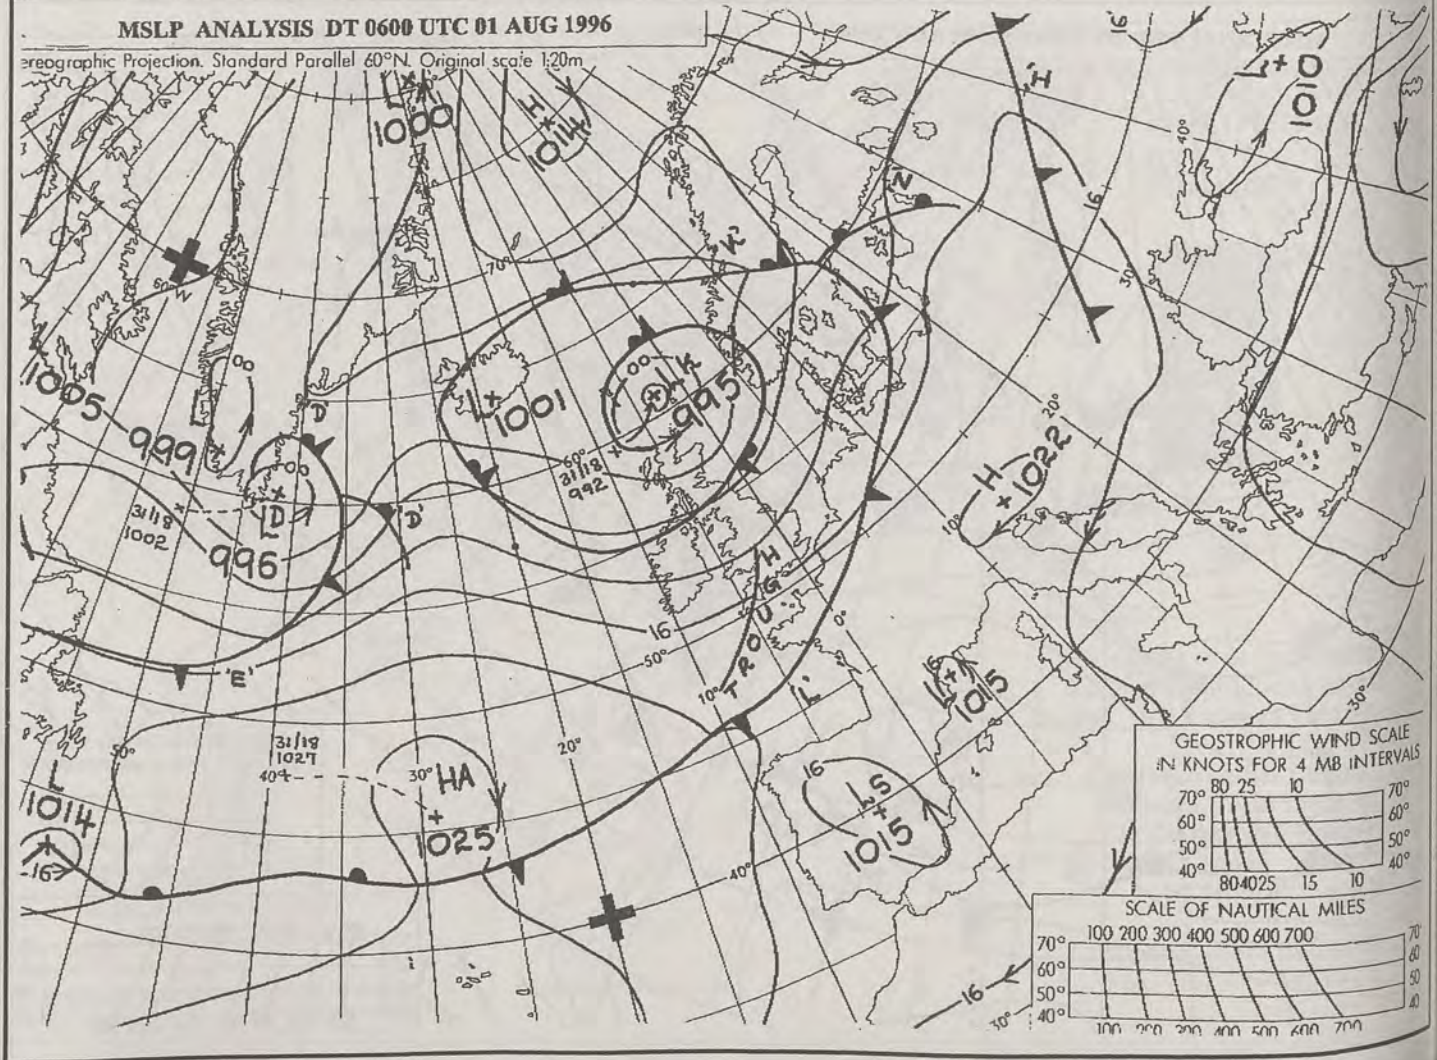 MSLP ANALYSIS DT 0600 UTC 01 AUG 1996
ereographic Projection. Standard Parallel 60°N. Original scale 1:20m
L
1000
H
1014
'H'
16
L
1010
40°
N
'K'
70°
60°W
16
30°
1005
00
'D'
L
1001
00
LK
995
20°
H
1022
999
L
00
60°
31/18
992
31/18
1002
LD
'D'
996
10°
H
TROUGH
16
50°
0°
'E'
10°
'L'
16
L
1015
30°
50°
31/18
1027
40
30°
HA
1025
20°
L
1014
16
16
LS
1015
40°
16
30°
GEOSTROPHIC WIND SCALE
IN KNOTS FOR 4 MB INTERVALS
80 25 10
70° 70°
60° 60°
50° 50°
40° 40°
80 40 25 15 10
SCALE OF NAUTICAL MILES
100 200 300 400 500 600 700
70° 70
60° 60
50° 50
40° 40
100 200 300 400 500 600 700